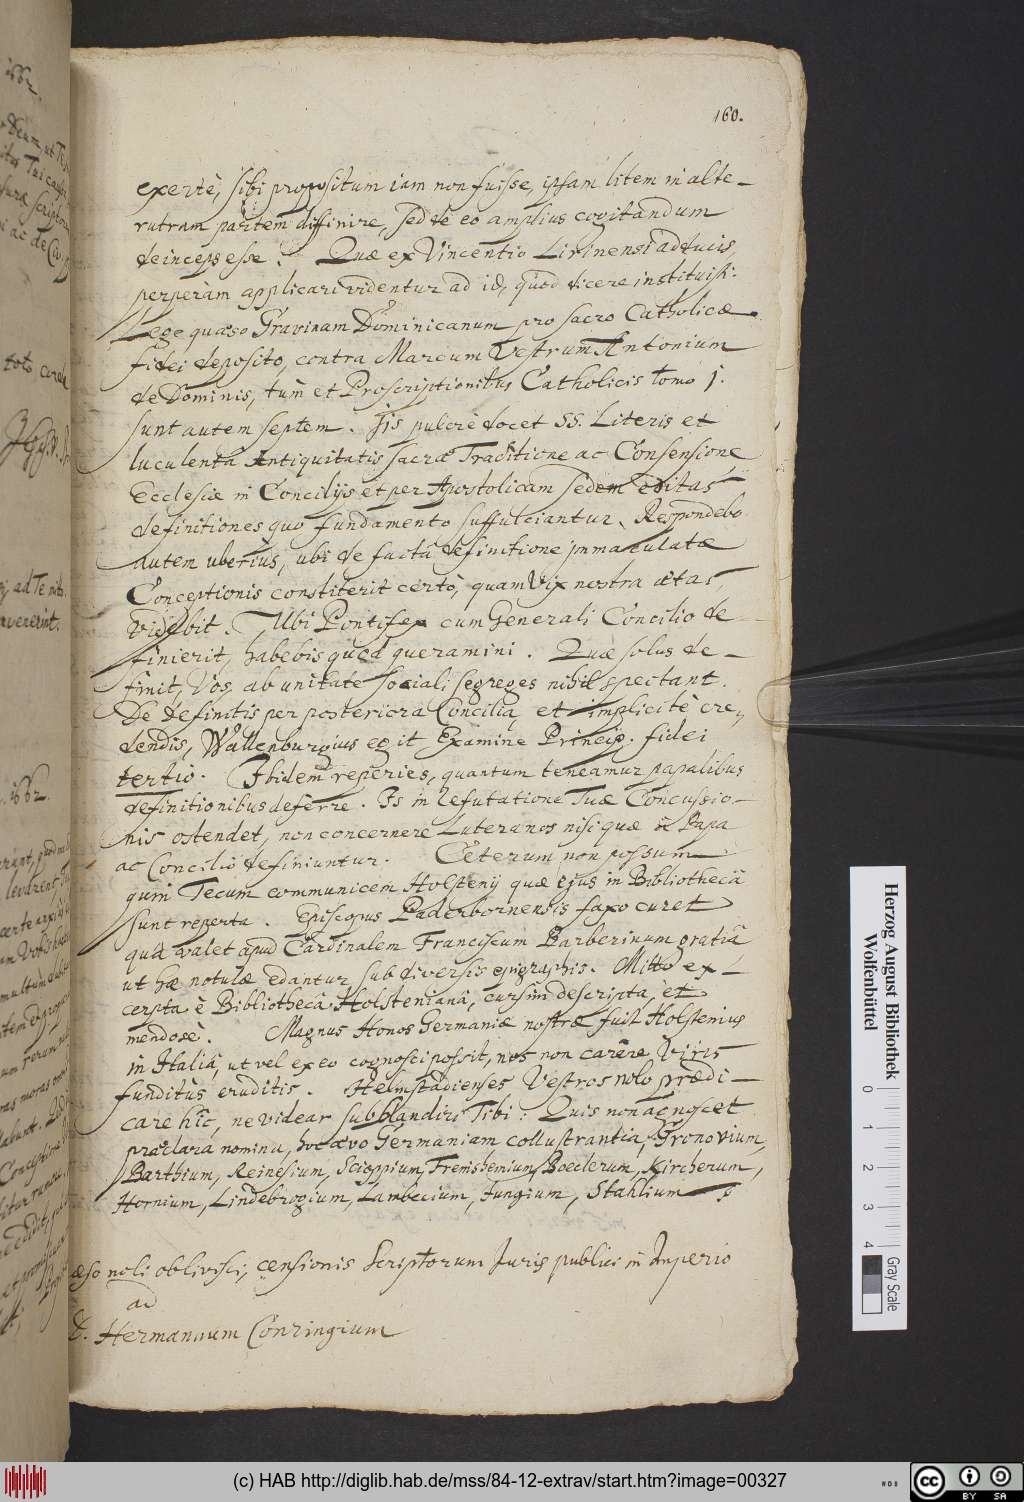 160.
exertè, sibi propositum iam non fuisse, ipsam litem in alte-
rutram partem diffinire, sed de eo amplius cogitandum
deinceps esse. Quæ ex Vincentio Lirinensi adducis,
perperàm applicari videntur ad id, quod dicere instituisti.
Lege quæso Gravinam Dominicanum pro sacro Catholicæ
fidei deposito, contra Marcum Vestrum Antonium
de Dominis, tùm et Proscriptionibus Catholicis tomo 1.
sunt autem septem. Is pulcrè docet SS. Literis et
luculenta Antiquitatis sacræ Traditione ac Consensione
Ecclesiæ in Concilijs et per Apostolicam sedem editas
definitiones quo fundamento suffulciantur. Respondebo
autem uberius, ubi de factâ definitione immaculatæ
Conceptionis constiterit certò, quam vix nostra ætas
videbit. Ubi Pontifex cum Generali Concilio de-
finierit, habebis quod queramini. Quæ solus de-
finit, Vos, ab unitate sociali segreges nihil spectant.
De definitis per posteriora Concilia et implicitè cre-
dendis, Wallenburgius egit Examine Princip. fidei
tertio. Ibidem reperies, quantum teneamur papalibus
definitionibus deferre. Is in refutatione Tuæ Concussio-
nis ostendet, non concernere Luteranos nisi quæ à Papa
ac Concilio definiuntur. Ceterum non possum
quin Tecum communicem Holstenij quæ ejus in Bibliothecâ
sunt reperta. Episcopus Paderbornensis faxo curet
quâ valet apud Cardinalem Franciscum Barberinum gratiâ
ut hæ notulæ edantur sub diversis epigraphis. Mitto ex-
cerpta è Bibliothecâ Holstenianâ, cursim descripta, et
mendosè. Magnus Honos Germaniæ nostræ fuit Holstenius
in Italiâ, ut vel ex eo cognosci possit, nos non carere Viris
funditùs eruditis. Helmstadienses Vestros nolo prædi-
care hîc, ne videar subblandiri Tibi: Quis non agnoscet
præclara nomina, hoc ævo Germaniam collustrantia, Gronovium,
Barthium, Reinesium, Scioppium, Freinshemium, Boeclerum, Kircherum,
Hornium, Lindebrogium, Lambecium, Jungium, Stahlium
æso noli oblivisci, censionis Scriptorum Juris publici in Imperio
ad
Hermannum Conringium
Herzog August Bibliothek
Wolfenbüttel
0 1 2 3 4
Gray Scale
(c) HAB http://diglib.hab.de/mss/84-12-extrav/start.htm?image=00327
cc BY SA